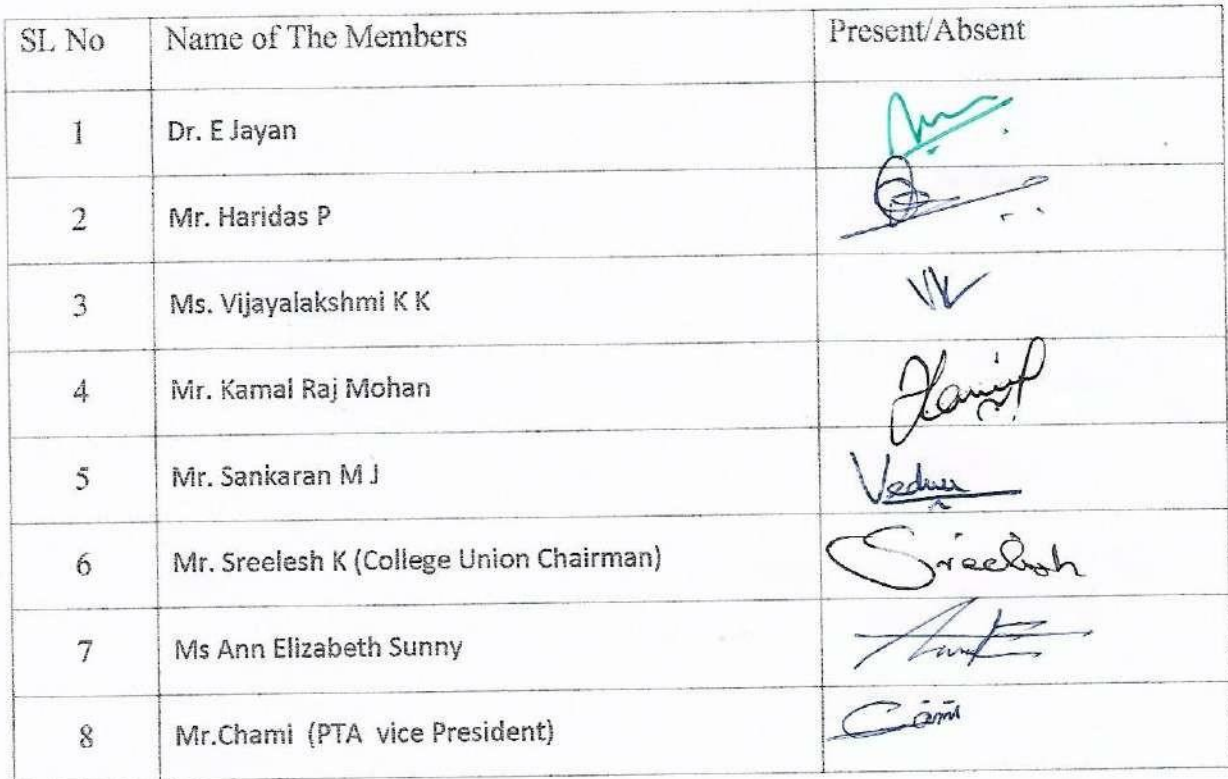 SL No Name of The Members Present/Absent
1 Dr. E Jayan
2 Mr. Haridas P
3 Ms. Vijayalakshmi K K
4 Mr. Kamal Raj Mohan
5 Mr. Sankaran M J
6 Mr. Sreelesh K (College Union Chairman) Sreelesh
7 Ms Ann Elizabeth Sunny
8 Mr.Chami (PTA vice President)